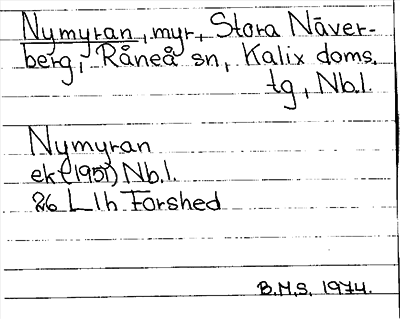 Nymyran, myr, Stora Näver-
berg, Råneå sn, Kalix doms.
tg, Nb.l.
Nymyran
ek (1951) Nb.l.
26 L l h Forshed
B.M.S. 1974.